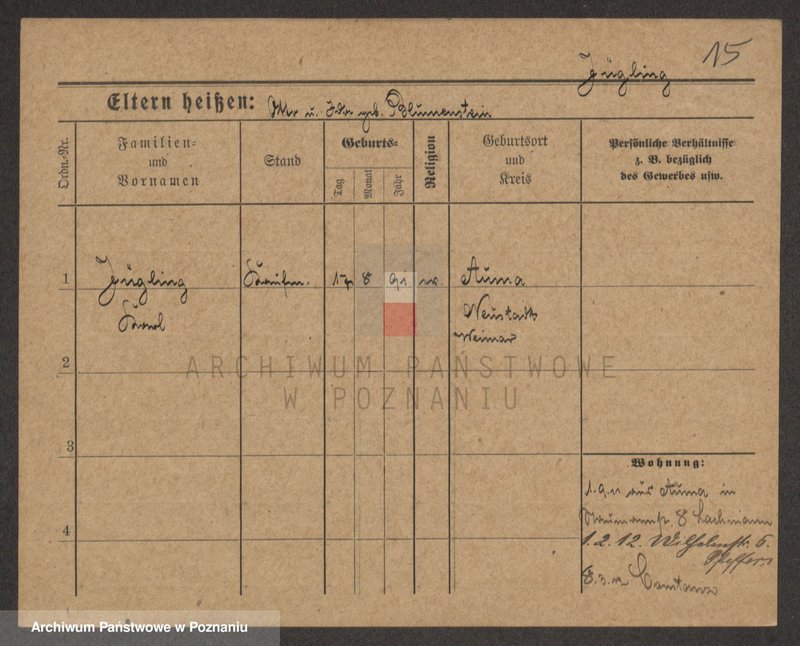 15
Jügling
Eltern heißen: Otto u. Ida geb. Blumenstein
Ordn.-Nr.
Familien-
und
Vornamen
Stand
Geburts-
Tag
Monat
Jahr
Religion
Geburtsort
und
Kreis
Persönliche Verhältnisse
z. B. bezüglich
des Gewerbes usw.
1
Jügling
Kaufm.
17 8 91 ev.
Auma
Karl
Neustadt
Weimar
2
ARCHIWUM PAŃSTWOWE
W POZNANIU
3
Wohnung:
1.9.11 aus Auma in
8 Lachmann
4
1.2.12. Wilhelmstr. 6.
Pfeffer
8.3.12 Constanz
Archiwum Państwowe w Poznaniu